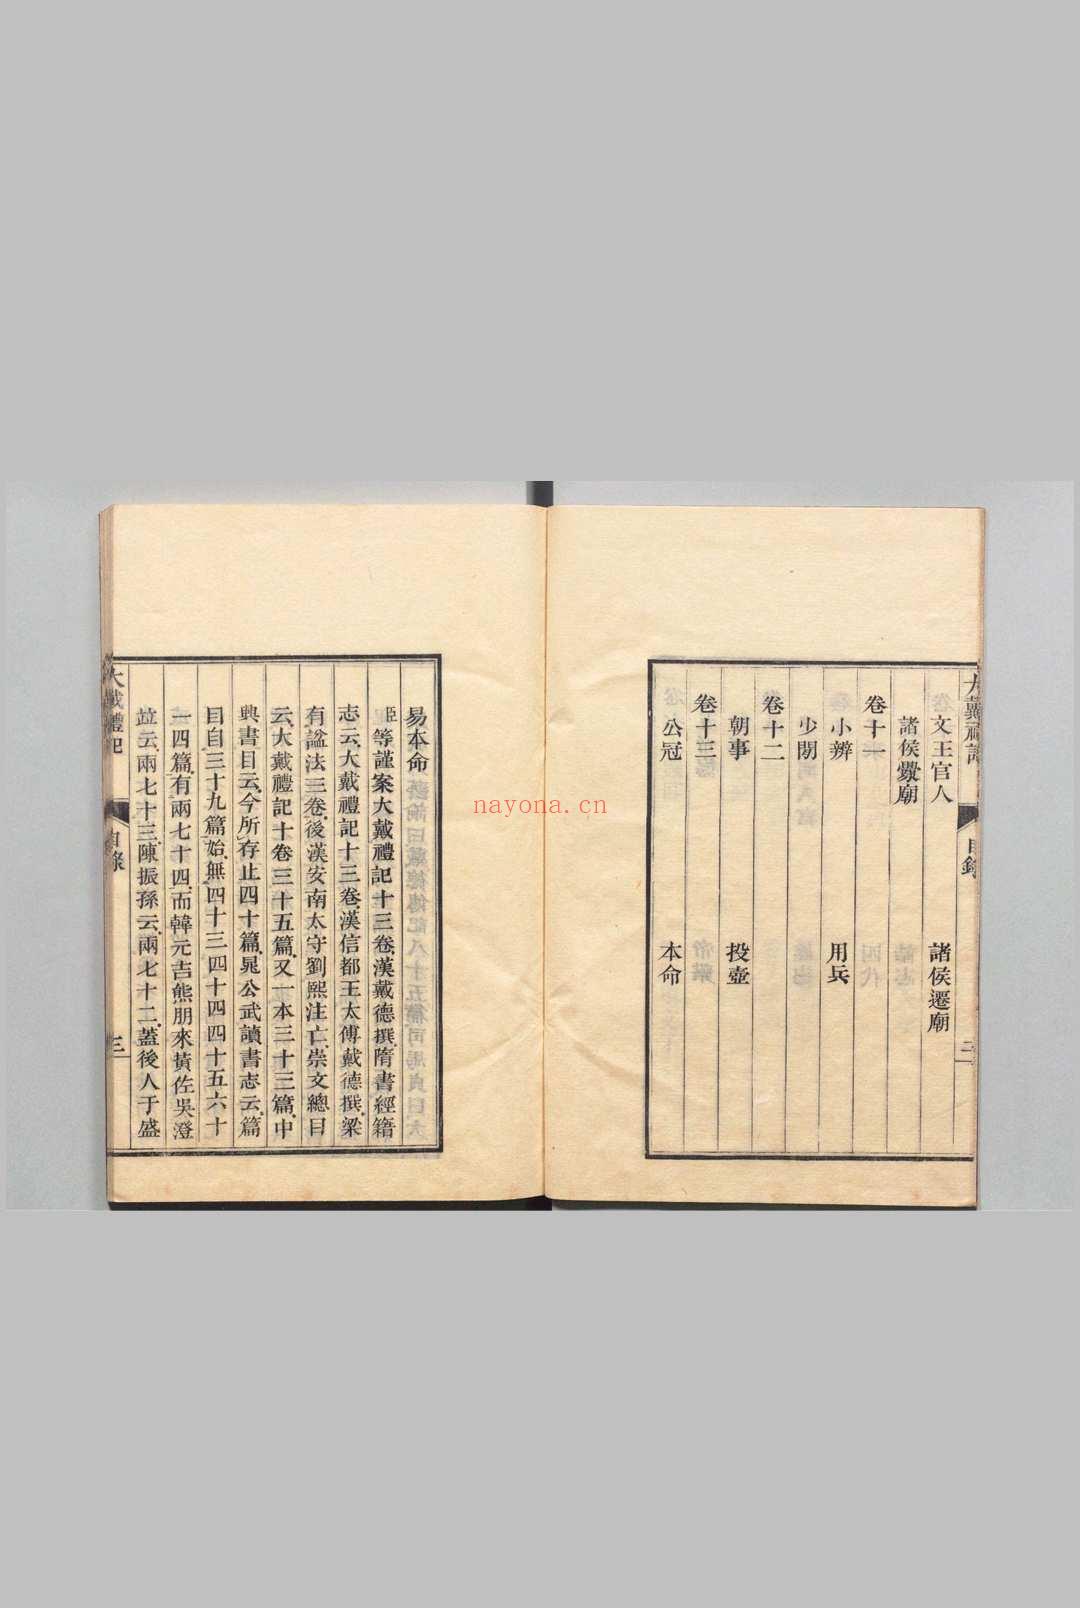 大戴禮記
目錄
二
文王官人 諸侯遷廟
諸侯釁廟
卷十一
小辨 用兵
少閒
卷十二
朝事 投壺
卷十三
公冠 本命
易本命
臣等謹案大戴禮記十三卷漢戴德撰隋書經籍
志云大戴禮記十三卷漢信都王太傅戴德撰梁
有諡法三卷後漢安南太守劉熙注亡崇文總目
云大戴禮記十卷三十五篇又一本三十三篇中
興書目云今所存止四十篇晁公武讀書志云篇
目自三十九篇始無四十三四十四四十五六十
一四篇有兩七十四而韓元吉熊朋來黃佐吳澄
竝云兩七十三陳振孫云兩七十二蓋後人于盛
大戴禮記
目錄
三
nayona.cn